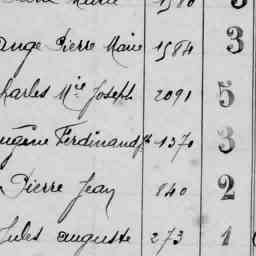 ange Pierre Marie 1584 3
harles Mie Joseph 2091 5
ugène Ferdinand 1370 3
Pierre Jean 840 2
Jules auguste 273 1